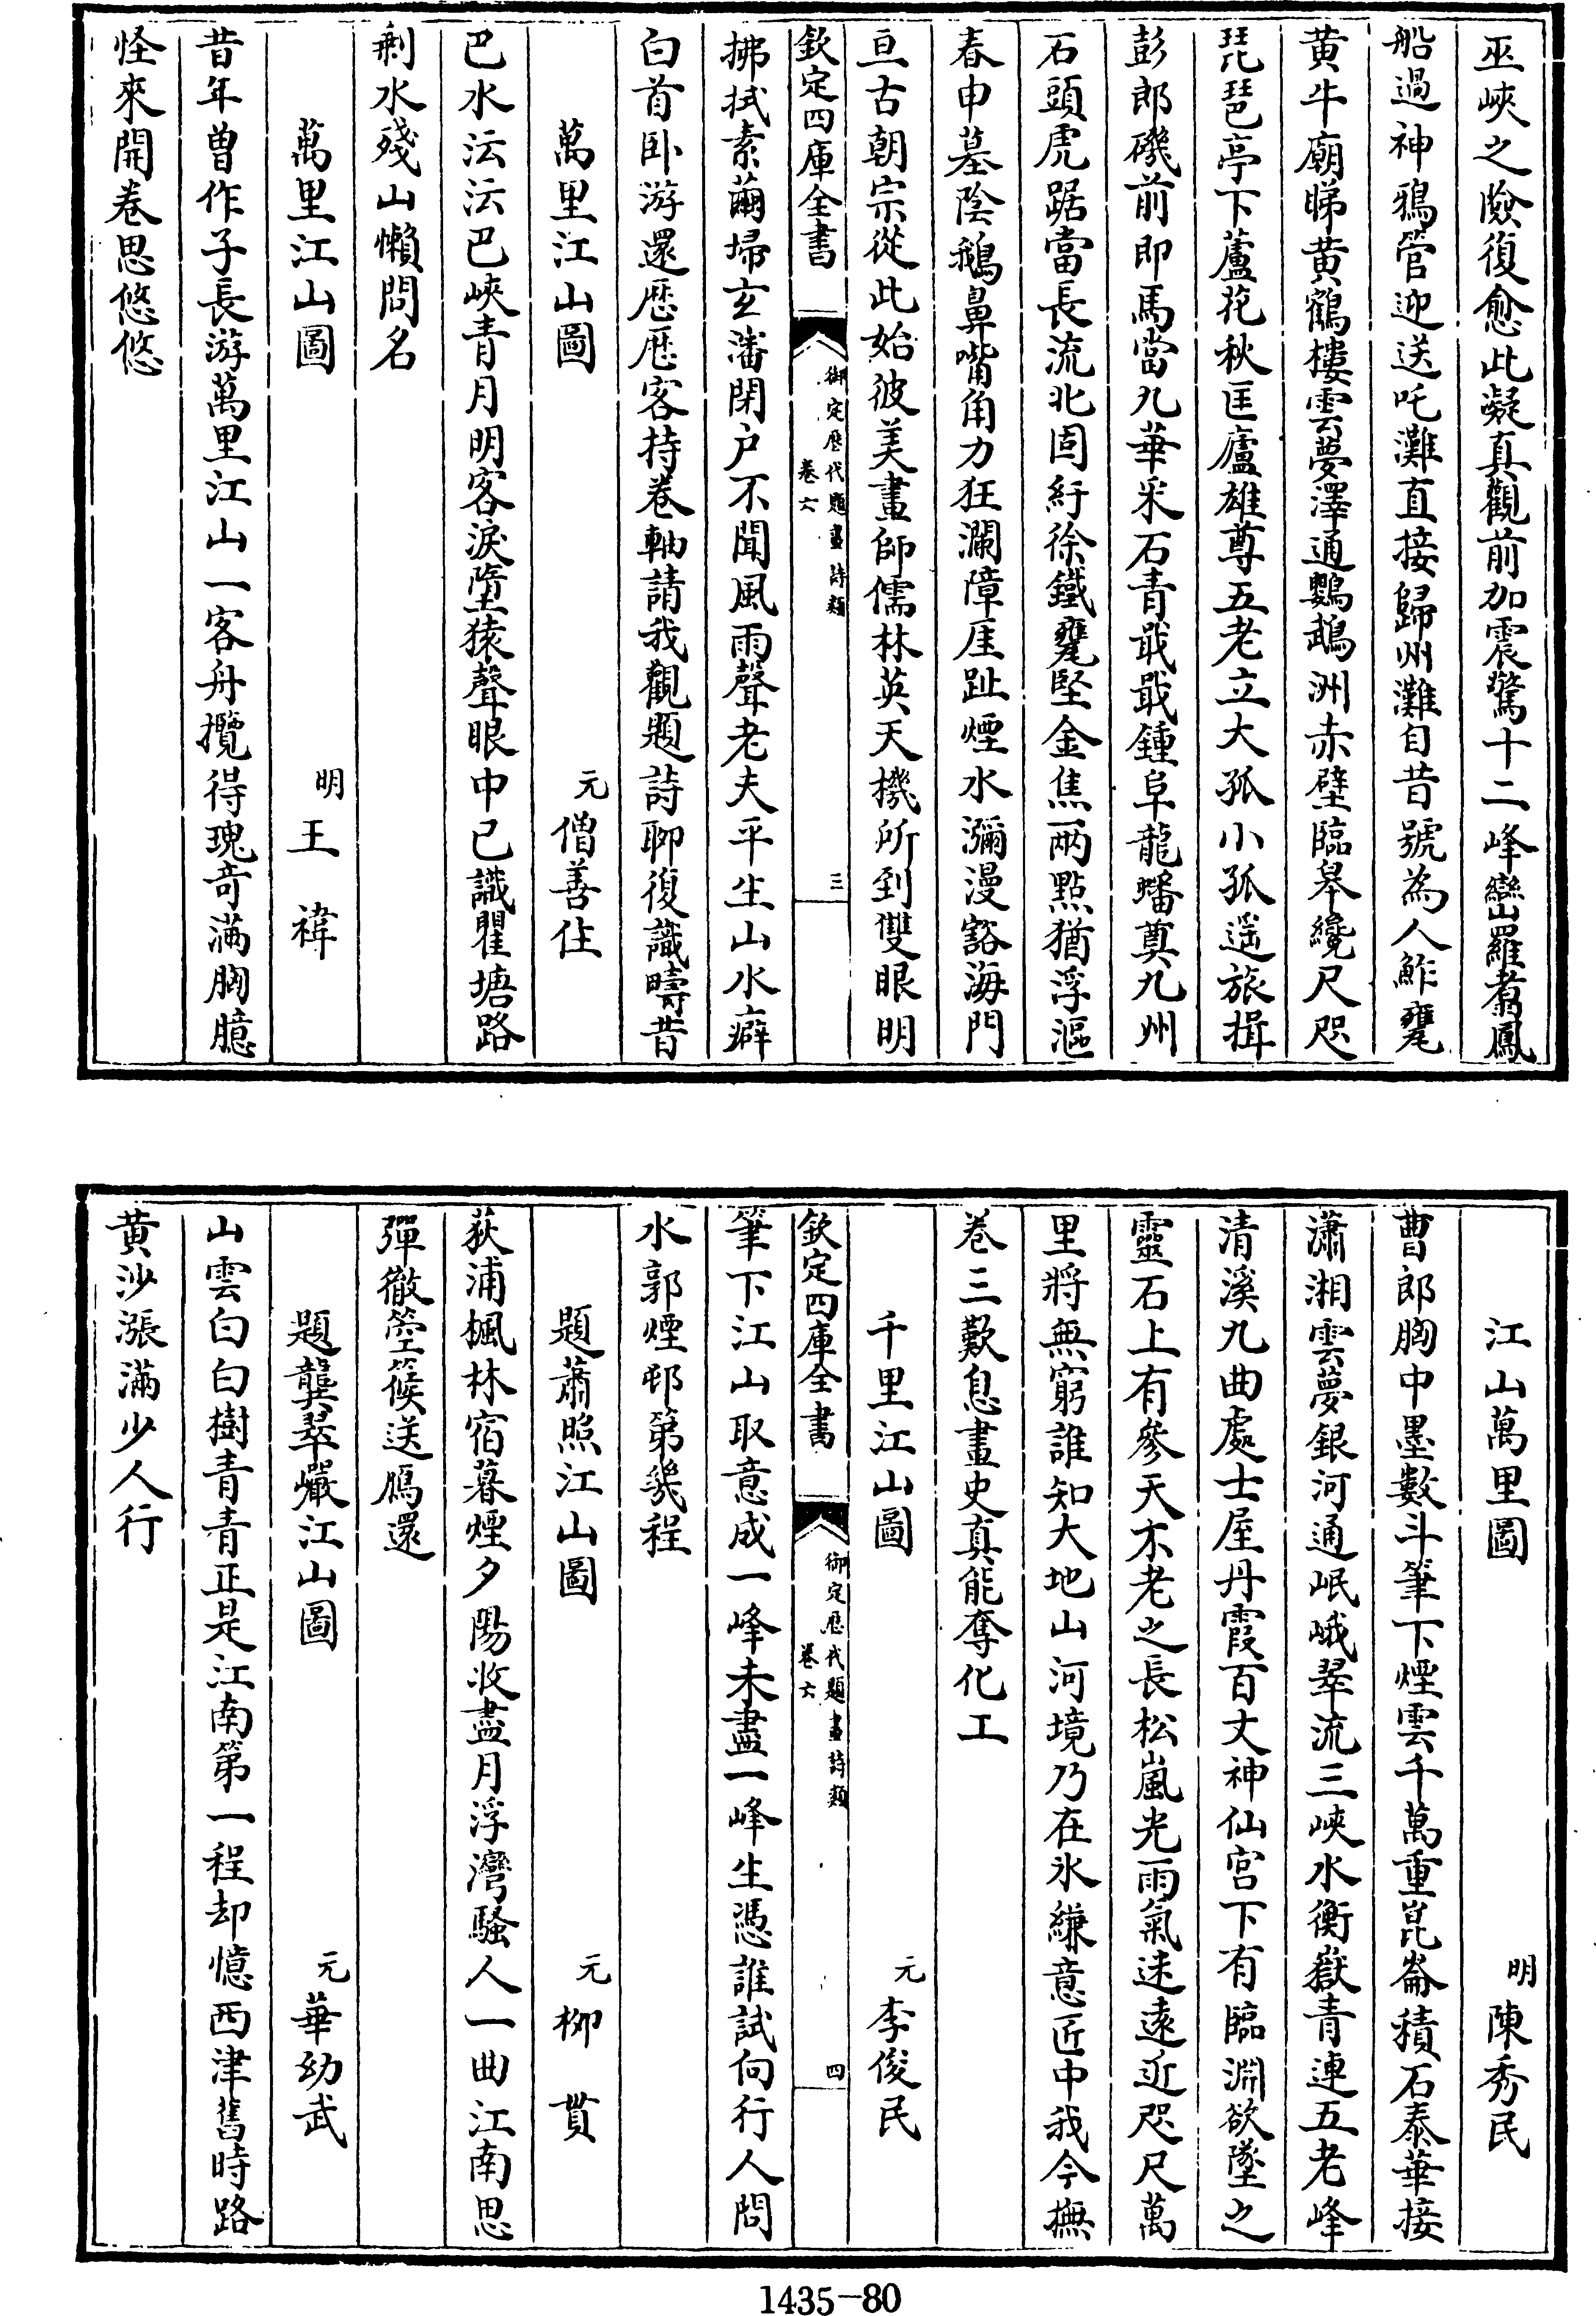 巫峽之險復愈此凝真觀前加震驚十二峰巒羅翥鳳
船過神鴉管迎送吒灘直接歸州灘自昔號為人鮓甕
黄牛廟睇黄鶴樓雲夢澤通鸚鵡洲赤壁臨皋纔尺咫
琵琶亭下蘆花秋匡廬雄尊五老立大孤小孤遥旅揖
彭郎磯前即馬當九華采石青戢戢鍾阜龍蟠奠九州
石頭虎踞當長流北固紆徐鐵甕堅金焦兩點猶浮漚
春申墓陰鵝鼻嘴角力狂瀾障厓趾煙水瀰漫豁海門
亘古朝宗從此始彼美畫師儒林英天機所到雙眼明
欽定四庫全書
御定歴代題畫詩類
卷六
三
拂拭素繭埽玄瀋閉户不聞風雨聲老夫平生山水癖
白首卧游還歴歴客持卷軸請我觀題詩聊復識疇昔
萬里江山圖
元 僧善住
巴水沄沄巴峽青月明客淚墮猿聲眼中已識瞿塘路
剩水殘山懶問名
萬里江山圖
明 王禕
昔年曾作子長游萬里江山一客舟攬得瑰奇滿胸臆
怪來開卷思悠悠
江山萬里圖
明 陳秀民
曹郎胸中墨數斗筆下煙雲千萬重崑崙積石泰華接
瀟湘雲夢銀河通岷峨翠流三峽水衡嶽青連五老峰
清溪九曲處士屋丹霞百丈神仙宫下有臨淵欲墜之
靈石上有參天不老之長松嵐光雨氣迷遠近咫尺萬
里將無窮誰知大地山河境乃在氷縑意匠中我今撫
卷三歎息畫史真能奪化工
千里江山圖
元 李俊民
欽定四庫全書
御定歴代題畫詩類
卷六
四
筆下江山取意成一峰未盡一峰生憑誰試向行人問
水郭煙邨第幾程
題蕭照江山圖
元 柳貫
荻浦楓林宿暮煙夕陽收盡月浮灣騷人一曲江南思
彈徹箜篌送鴈還
題龔翠巖江山圖
元 華幼武
山雲白白樹青青正是江南第一程却憶西津舊時路
黄沙漲滿少人行
1435-80